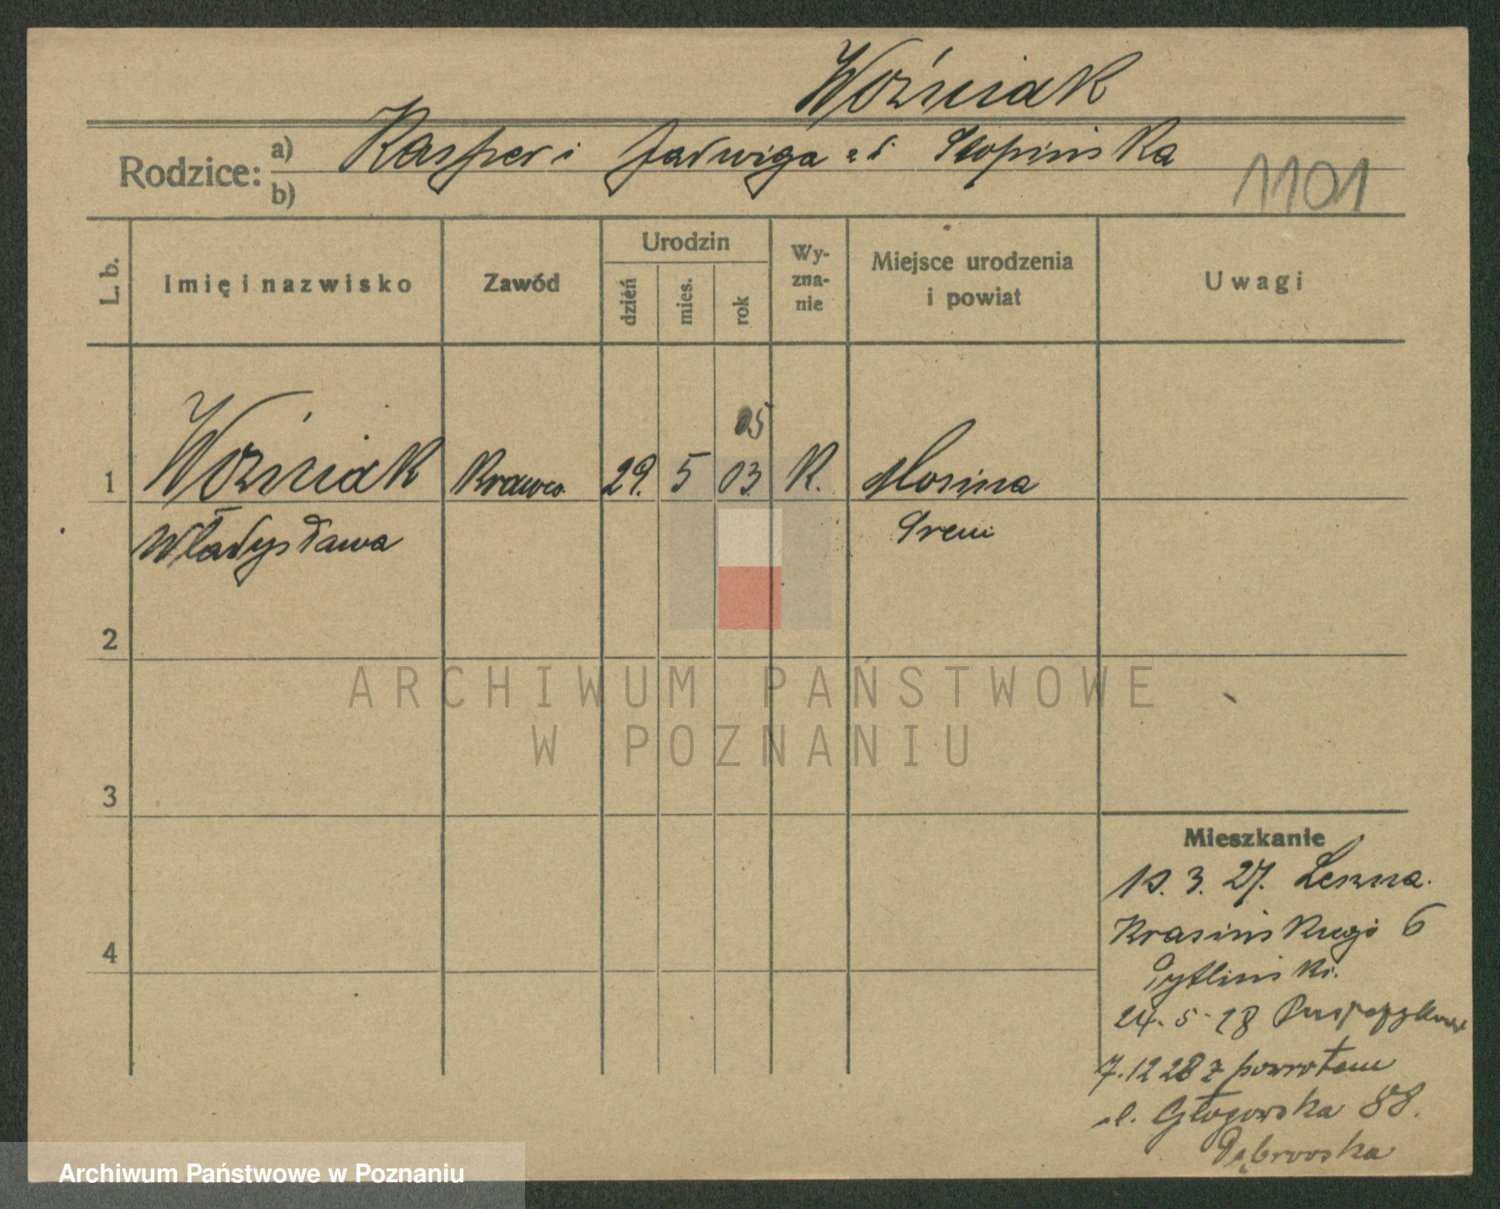 Woźniak
Rodzice: a) Kasper i Jadwiga z d. Stopińska
b)
1101
L. b.
Imię i nazwisko
Zawód
Urodzin
dzień
mies.
rok
Wy-
zna-
nie
Miejsce urodzenia
i powiat
Uwagi
05
1 Woźniak Krawco. 29. 5 03. K. Mosina
Władysława Śrem
2
3
4
ARCHIWUM PAŃSTWOWE
W POZNANIU
Mieszkanie
10. 3. 27. Leszna.
Krasińskiego 6
24. 5. 28
7. 12 28 z powrotem
ul. Głogowska 88.
Dąbrowska
Archiwum Państwowe w Poznaniu